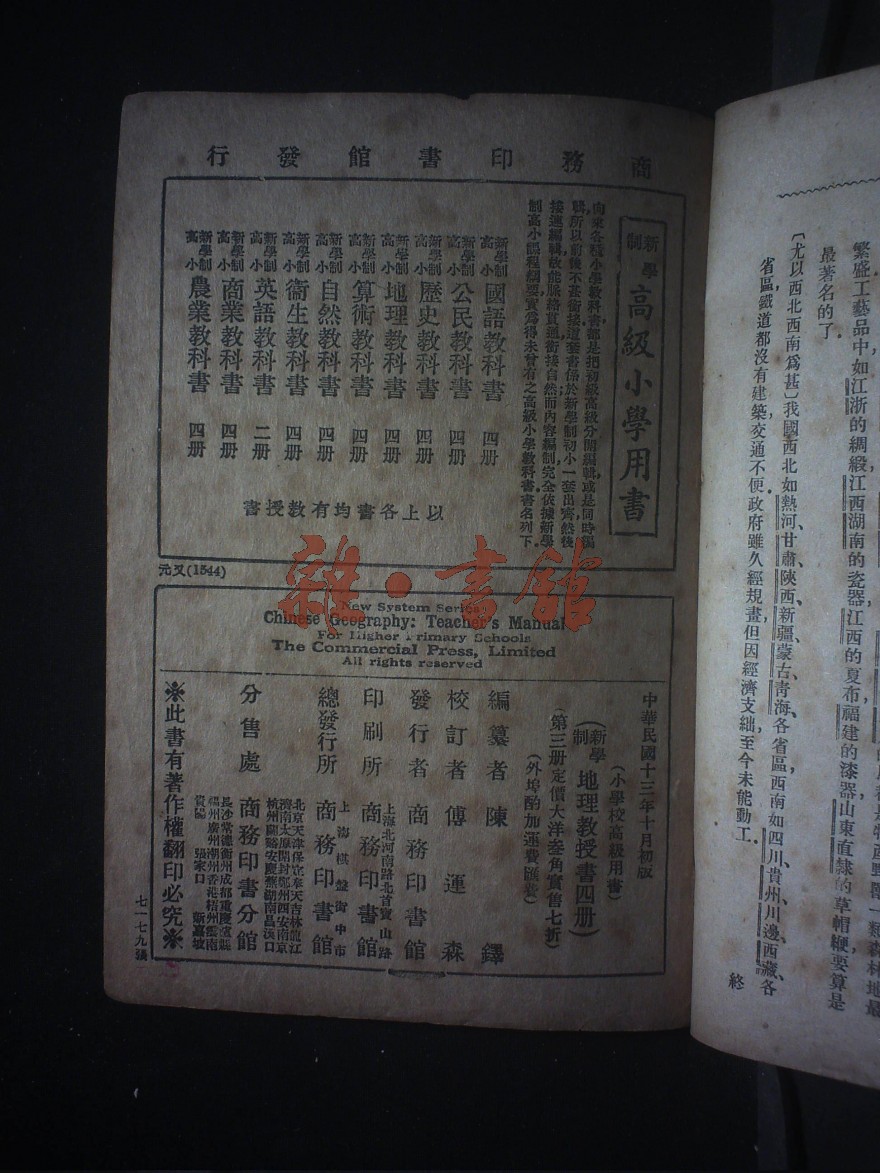 商務印書館發行
新學制 高級小學用書
向來各種小學教科書都是把初級高級分開編輯或是同時編
輯所以前後不甚銜接這套書係於新學制初小一套出齊然後
接連編輯故能脈絡貫通銜接自然而內容編制完全依據新學
制高小課程綱要實為得未曾有之高級小學教科書書名列下
新學制高小 國語教科書 四册
新學制高小 公民教科書 四册
新學制高小 歷史教科書 四册
新學制高小 地理教科書 四册
新學制高小 算術教科書 四册
新學制高小 自然教科書 四册
新學制高小 衞生教科書 四册
新學制高小 英語教科書 二册
新學制高小 商業教科書 四册
新學制高小 農業教科書 四册
以上各書均有教授書
元又(1344)
雜·書館
New System Series
Chinese Geography: Teacher's Manual
For Higher Primary Schools
The Commercial Press, Limited
All rights reserved
中華民國十三年十月初版
(小學校高級用書)
(新學制 地理教授書四册)
第三册定價大洋叁角實售七折
(外埠酌加運費匯費)
編纂者 陳鐸
校訂者 傅運森
發行者 商務印書館
上海北河南路北首寶山路
印刷所 商務印書館
上海棋盤街中市
總發行所 商務印書館
北京天津保定奉天吉林龍江
濟南太原開封鄭州西安南京
杭州蘭谿安慶蕪湖南昌漢口
分售處 商務印書分館
長沙常德衡州成都重慶瀘縣
福州廣州潮州香港梧州雲南
貴陽 張家口 新嘉坡
※此書有著作權翻印必究※
七一七九張
繁盛工藝品中如江浙的綢緞江西湖南的瓷器江西的夏布福建的漆器山東直隸的草帽鞭要算是
最著名的了
〔尤以西北西南爲甚〕我國西北如熱河、甘肅、陝西、新疆、蒙古、青海、各省區,西南如四川、貴州、川邊、西藏、各
省區,鐵道都沒有建築,交通不便,政府雖久經規畫,但因經濟支絀,至今未能動工.
終